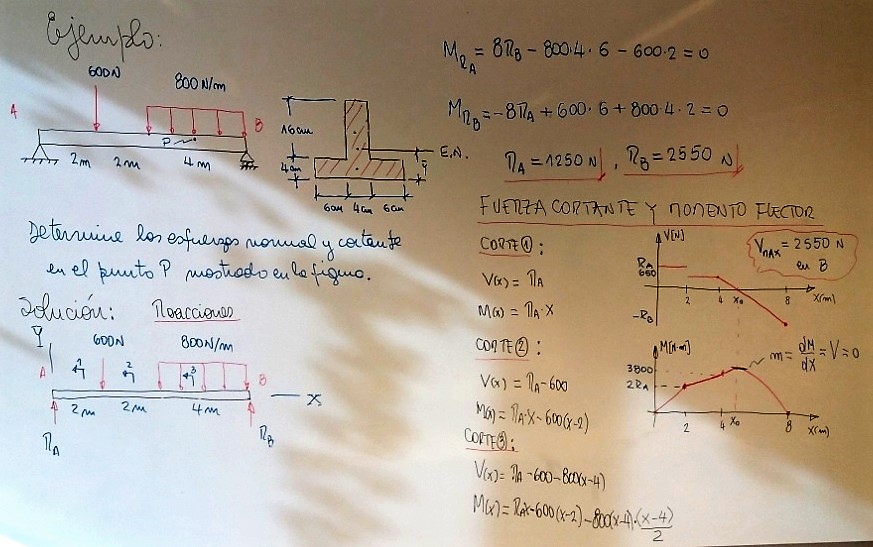 Ejemplo:
600N
800 N/m
A
B
P
2m 2m 4m
16cm
4cm
E.N.
ȳ
6cm 4cm 6cm
Determine los esfuerzos normal y cortante
en el punto P mostrado en la figura.
Solución: Reacciones
Y
600N
800N/m
A
1
2
3
B
X
2m 2m 4m
RA
RB
MRA = 8RB - 800·4·6 - 600·2 = 0
MRB = -8RA + 600·6 + 800·4·2 = 0
RA = 1250 N , RB = 2550 N
FUERZA CORTANTE Y MOMENTO FLECTOR
CORTE 1 :
V(x) = RA
M(x) = RA·X
CORTE 2 :
V(x) = RA-600
M(x) = RA·X-600(x-2)
CORTE 3 :
V(x) = RA-600-800(x-4)
M(x) = RAX-600(x-2)-800(x-4)·(x-4)/2
V[N]
RA
650
-RB
2 4 X0 8 X(m)
VMAX = 2550 N
en B
M[N·m]
3800
2RA
2 4 X0 8 X(m)
m = dM/dX = V = 0